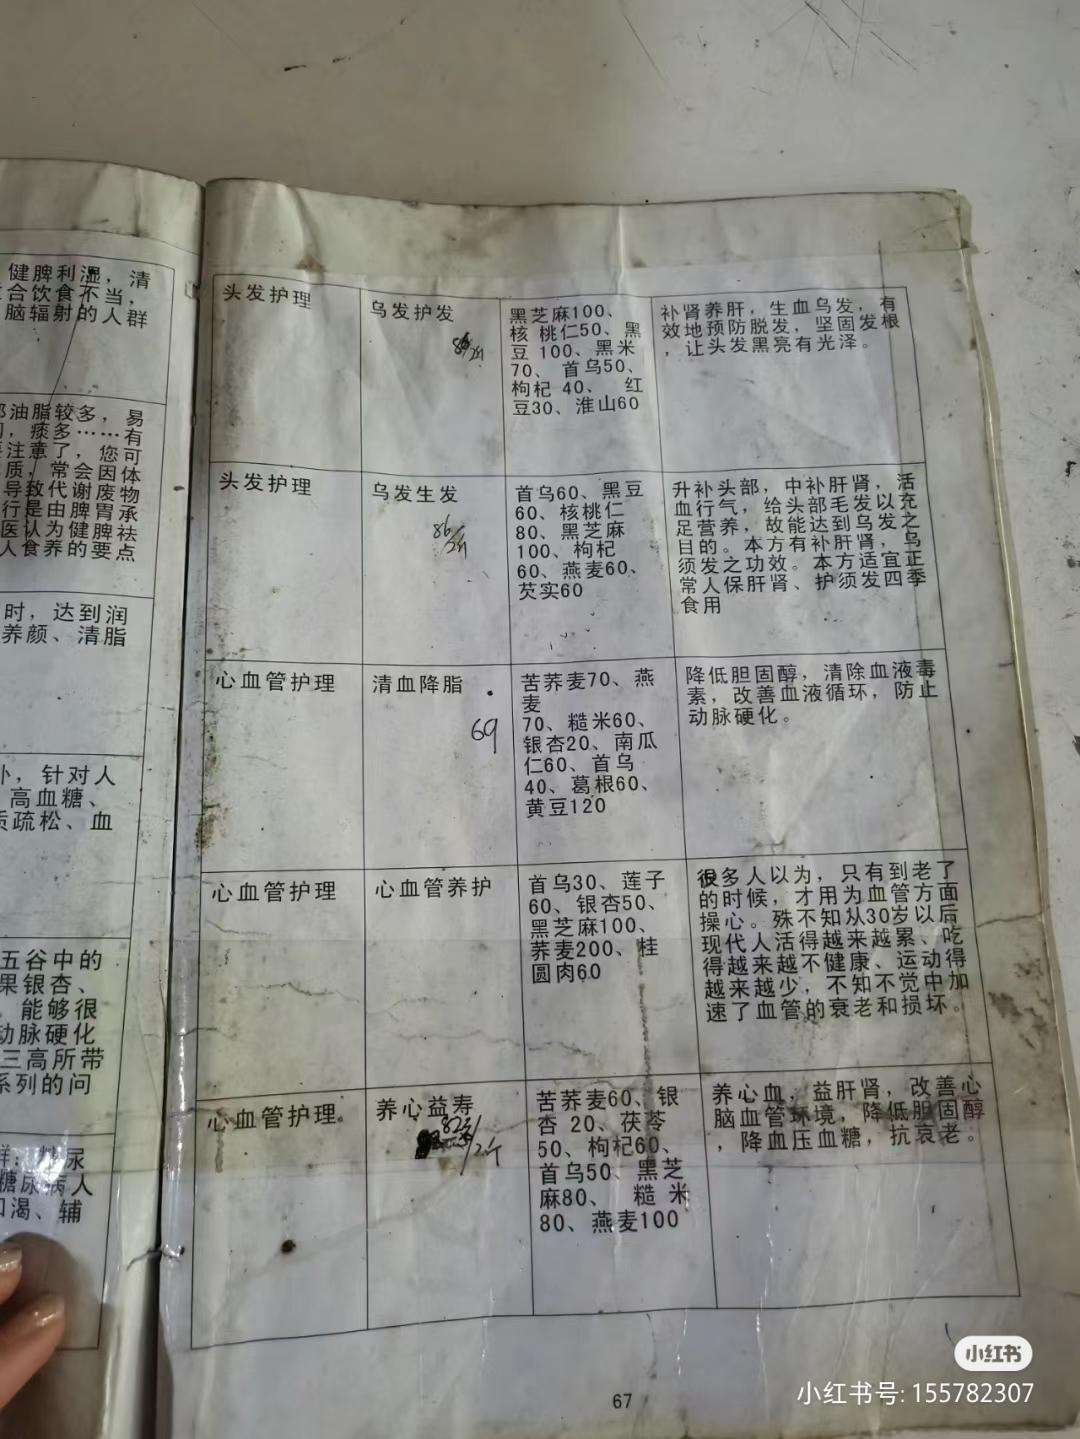 健脾利湿，清
合饮食不当，
脑辐射的人群
油脂较多，易
，痰多……有
注意了，您可
质，常会因体
导致代谢废物
行是由脾胃承
医认为健脾祛
人食养的要点
时，达到润
养颜、清脂
卜，针对人
高血糖、
质疏松、血
五谷中的
果银杏、
能够很
动脉硬化
三高所带
系列的问
尿
糖尿病人
口渴、辅
头发护理
乌发护发
86/2斤
黑芝麻100、
核 桃仁50、黑
豆 100、黑米
70、 首乌50、
枸杞 40、 红
豆30、淮山60
补肾养肝，生血乌发，有
效地预防脱发，坚固发根
，让头发黑亮有光泽。
头发护理
乌发生发
86/2斤
首乌60、黑豆
60、核桃仁
80、黑芝麻
100、枸杞
60、燕麦60、
芡实60
升补头部，中补肝肾，活
血行气，给头部毛发以充
足营养，故能达到乌发之
目的。本方有补肝肾，乌
须发之功效。本方适宜正
常人保肝肾、护须发四季
食用
心血管护理
清血降脂
69
苦荞麦70、燕
麦
70、糙米60、
银杏20、南瓜
仁60、首乌
40、葛根60、
黄豆120
降低胆固醇，清除血液毒
素，改善血液循环，防止
动脉硬化。
心血管护理
心血管养护
首乌30、莲子
60、银杏50、
黑芝麻100、
荞麦200、桂
圆肉60
很多人以为，只有到老了
的时候，才用为血管方面
操心。殊不知从30岁以后
现代人活得越来越累、吃
得越来越不健康、运动得
越来越少，不知不觉中加
速了血管的衰老和损坏。
心血管护理。
养心益寿
82元/2斤
苦荞麦60、银
杏 20、茯苓
50、枸杞60、
首乌50、黑芝
麻80、 糙 米
80、燕麦100
养心血，益肝肾，改善心
脑血管环境，降低胆固醇
，降血压血糖，抗衰老。
67
小红书
小红书号: 155782307